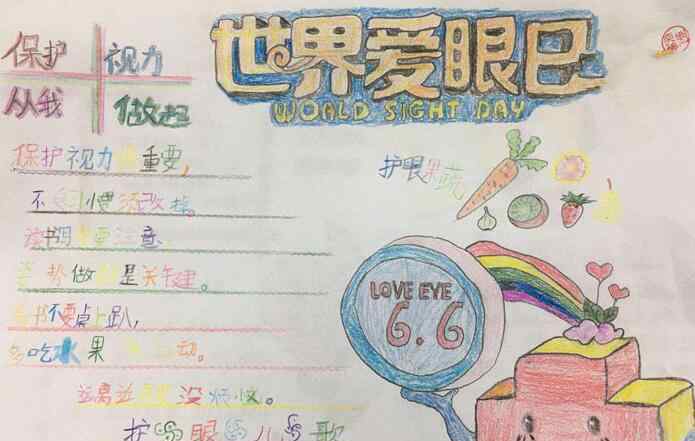 世界爱眼日
WORLD SIGHT DAY
保护 视力
从我 做起
保护视力 重要,
不 习惯 改掉。
读书 要注意,
姿势做 是关键。
书不要桌上趴,
多吃水果 动。
远离近 没烦恼。
护眼儿歌
护眼果蔬
LOVE EYE
6.6